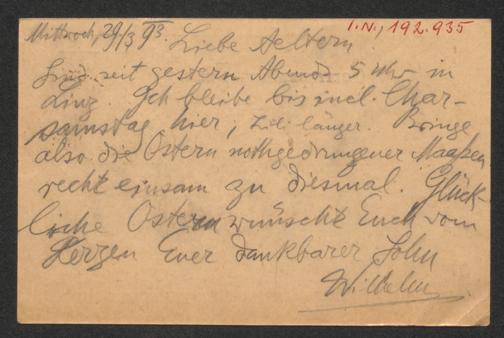 Mittwoch, 29/3 93.
I.N., 192.935
Liebe Aeltern
Sind seit gestern Abends 5 Uhr in
Linz. Ich bleibe bis incl. Char-
samstag hier, länger. Bringe
also die Ostern nothgedrungener Maaßen
recht einsam zu diesmal. Glück-
liche Ostern wünscht Euch vom
Herzen Euer dankbarer Sohn
Wilhelm